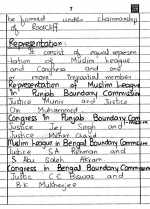 7
be formed under chairmanship
of Radcliff.
Representation:
It consist of equal represen
tation of Muslim League
and Congress and one
or more impartial member
Representation of Muslim League
in Punjab Boundary Commission
Justice Munir and Justice
Din Muhammad.
Congress in Punjab Boundary Com-
mission
Justice Tej Singh and
Justice Mehar Chand
Muslim League in Bengal Boundary Commission
Justice S.A Rehman and
S Abu Saleh Akram.
Congress in Bengal Boundary Commission
Justice C.C Biswas and
B.K Mukherjee